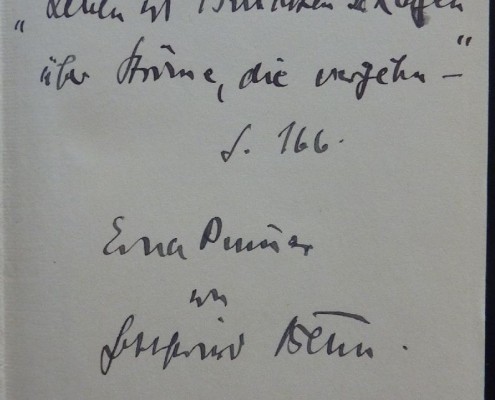 „Leben ist Brückenschlagen
über Ströme, die vergehn —“
S. 166.
Erna Pinner
von
Gottfried Benn.